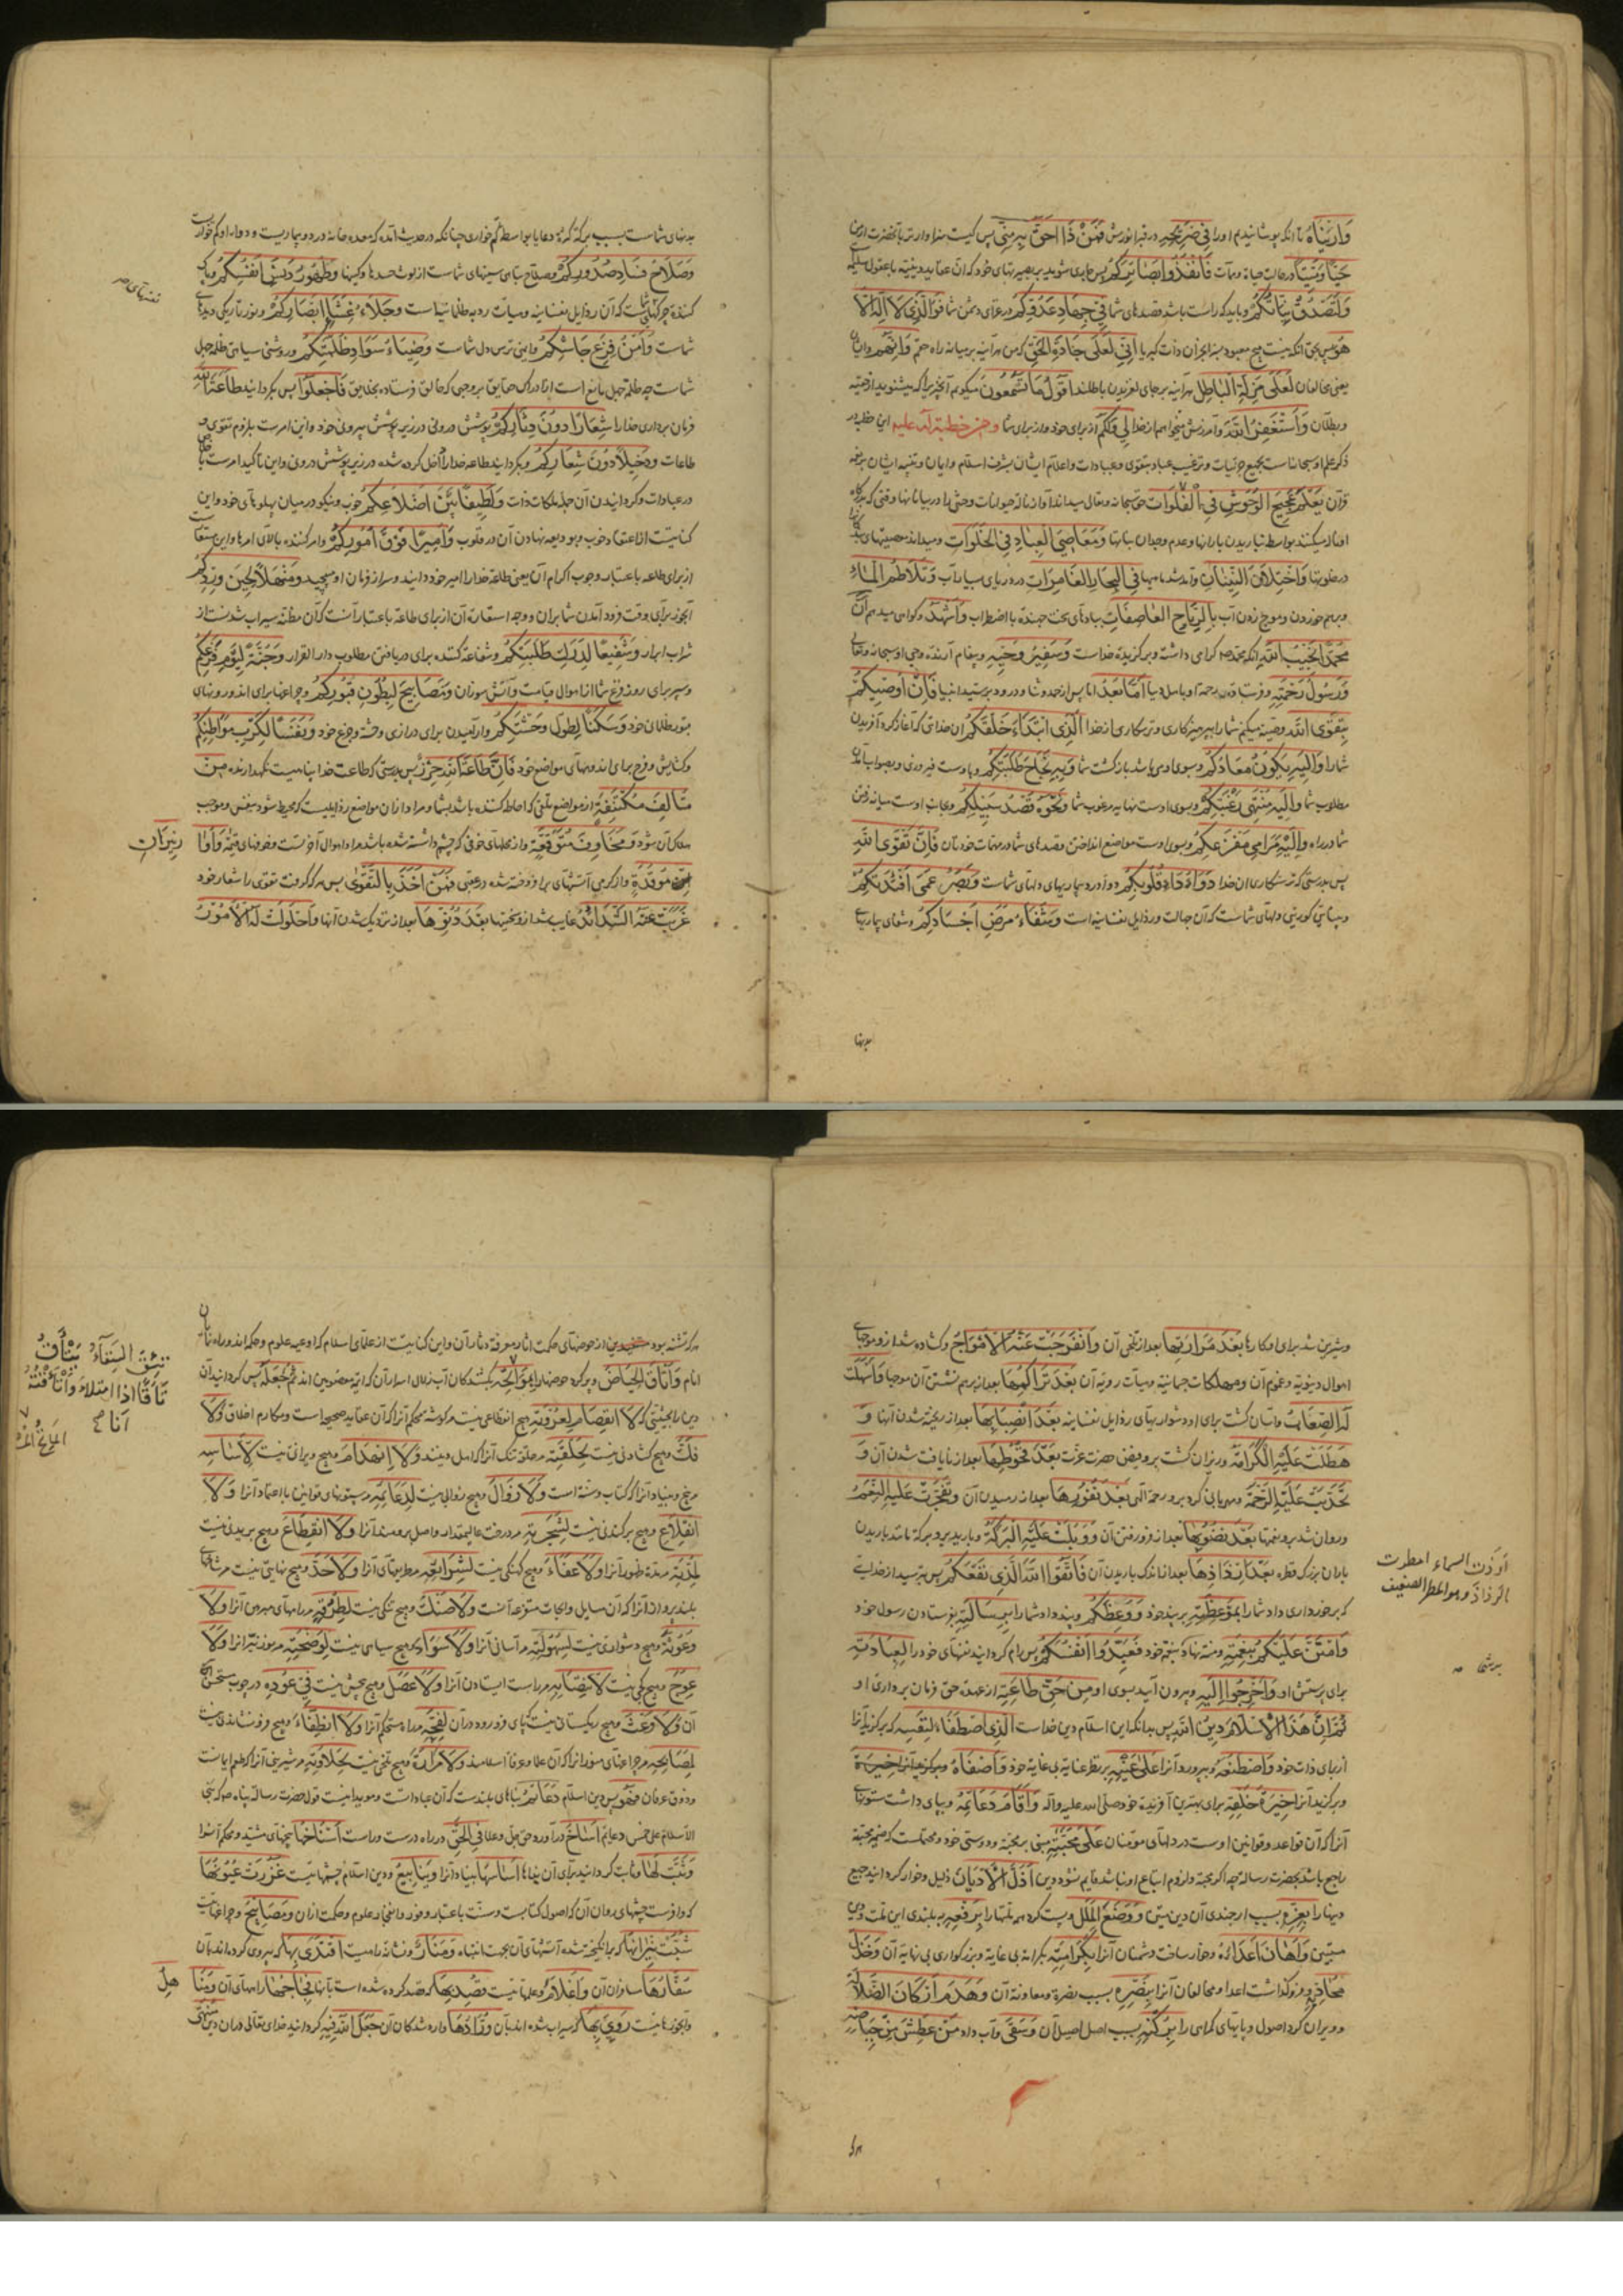 وَارَيْنَاهُ تا آنکه پوشانیدیم او را فِي ضَرِيحِهِ در قبر انورش فَمَنْ ذَا أَحَقُّ بِهِ مِنِّي پس کیست سزاوارتر بآنحضرت از من
حَيًّا وَمَيِّتًا در حالت حیاة و ممات فَانْفُذُوا بَصَائِرَكُمْ پس جاری شوید بر بصیرتهای خود که آن عقاید دینیّه
وَلْتَصْدُقْ نِيَّاتُكُمْ و باید که راست باشد قصدهای شما فِي جِهَادِ عَدُوِّكُمْ در غزای دشمن شما فَوَالَّذِي لَا إِلٰهَ إِلَّا
هُوَ پس بحق آنکه نیست هیچ معبود بسزا بجز آن ذات کبریا إِنِّي لَعَلَى جَادَّةِ الْحَقِّ که من هرآینه بر میانه راه حقم وَإِنَّهُمْ
یعنی مخالفان لَعَلَى مَزَلَّةِ الْبَاطِلِ هرآینه بر جای لغزیدن باطلند أَقُولُ مَا تَسْمَعُونَ میگویم آنچیز را که میشنوید از حقیّة
و بطلان وَأَسْتَغْفِرُ اللَّهَ و آمرزش میخواهم از خدا لِي وَلَكُمْ از برای خود و از برای شما ومن خطبة له علیه این خطبه در
ذکر علم او سبحانه است بجمیع جزئیات و ترغیب عباد بتقوی و عبادات و اعلام ایشان بشرف اسلام و ایمان و تنبیه ایشان
قرآن يَعْلَمُ عَجِيجَ الْوُحُوشِ فِي الْفَلَوَاتِ حق سبحانه و تعالی میداند آواز ناله حیوانات وحشی را در بیابانها وقتی که
بواسطه نباریدن بارانها و عدم وجدان نباتها وَمَعَاصِيَ الْعِبَادِ فِي الْخَلَوَاتِ و میداند معصیتهای
در خلوتها وَاخْتِلَافَ النِّينَانِ و آمد شد ماهیها فِي الْبِحَارِ الْغَامِرَاتِ در دریای بسیار آب وَتَلَاطُمَ الْمَاءِ
و برهم خوردن و موج زدن آب بِالرِّيَاحِ الْعَاصِفَاتِ ببادهای سخت جهنده با اضطراب وَأَشْهَدُ و گواهی میدهم أَنَّ
مُحَمَّدًا نَجِيبُ اللَّهِ آنکه محمد گرامی داشته و برگزیده خداست وَسَفِيرُ وَحْيِهِ و پیغام آرنده وحی او سبحانه و تعالی
وَرَسُولُ رَحْمَتِهِ أَمَّا بَعْدُ اما پس از حمد و ثنا و درود بر سید انبیا فَإِنِّي أُوصِيكُمْ
بِتَقْوَى اللَّهِ وصیّت میکنم شما را بپرهیزکاری و ترسکاری از خدا الَّذِي ابْتَدَأَ خَلْقَكُمْ آن خدائی که آغاز کرد آفریدن
شما را وَإِلَيْهِ يَكُونُ مَعَادُكُمْ و بسوی وی باشد بازگشت شما وَبِهِ نَجَاحُ طَلِبَتِكُمْ و باوست فیروزی و
مطلوب شما وَإِلَيْهِ مُنْتَهَى رَغْبَتِكُمْ و بسوی اوست نهایه مرغوب شما وَنَحْوَهُ قَصْدُ سَبِيلِكُمْ و بجانب اوست میانه رفتن
شما در راه وَإِلَيْهِ مَرَامِي مَفْزَعِكُمْ و بسوی اوست مواضع انداختن قصدهای شما در مهمات خودتان فَإِنَّ تَقْوَى اللَّهِ
پس بدرستی که ترسکاری از خدا دَوَاءُ دَاءِ قُلُوبِكُمْ دوای درد و بیماریهای دلهای شماست وَبَصَرُ عَمَى أَفْئِدَتِكُمْ
و بینائی کوری دلهای شماست که آن جهالت و رذایل نفسانیه است وَشِفَاءُ مَرَضِ أَجْسَادِكُمْ و شفای بیماریهای
بدنها
بدنهای شماست بسبب برکة دعا یا بواسطه کم خواری چنانکه در حدیث آمده که معده خانه درد و بیماریست و دوا
وَصَلَاحُ فَسَادِ صُدُورِكُمْ و صلاح تباهی سینهای شماست از لوث حسدها و کینها وَطَهُورُ دَنَسِ أَنْفُسِكُمْ و پاک
کننده چرکهای شماست که آن رذایل نفسانیه و سیأت ردیه ظلمانیه است وَجَلَاءُ غِشَاءِ أَبْصَارِكُمْ و نور تاریکی دیدهای
شماست وَأَمْنُ فَزَعِ جَأْشِكُمْ و ایمنی ترس دل شماست وَضِيَاءُ سَوَادِ ظُلْمَتِكُمْ و روشنی سیاهی ظلمة جهل
شماست چه ظلمة جهل مانع است از ادراک حقایق فَاجْعَلُوا پس بگردانید طَاعَةَ اللَّهِ
فرمان برداری خدا را شِعَارًا دُونَ دِثَارِكُمْ پوشش درونی در زیر پوشش بیرونی خود و این امر است بلزوم تقوی و
طاعات وَدَخِيلًا دُونَ شِعَارِكُمْ و بگردانید طاعة خدا را داخل کرده شده در زیر پوشش درونی و این تأکید امر است
در عبادات و گردانیدن آن جمله ملکات ذات وَلَطِيفًا بَيْنَ أَضْلَاعِكُمْ خوب و نیکو در میان پهلوهای خود و این
کنایتست از اعتقاد خوب و ودیعه نهادن آن در قلوب وَأَمِيرًا فَوْقَ أُمُورِكُمْ و امر کننده بالای امرها و این
از برای طاعة باعتبار وجوب اکرام آن یعنی طاعة خدا را امیر خود دانید و سر از فرمان او مپیچید وَمَنْهَلًا لِحِينِ وُرُودِكُمْ
و آبخور برای وقت فرود آمدن شما بر آن و وجه استعاره آن از برای طاعة باعتبار آنست که آن مظنّه سیراب شدنست از
شراب ابرار وَشَفِيعًا لِدَرَكِ طَلِبَتِكُمْ و شفاعة کننده برای دریافتن مطلوب دار القرار وَجُنَّةً لِيَوْمِ فَزَعِكُمْ
و سپر برای روز فزع شما از اهوال قیامت و آتش سوزان وَمَصَابِيحَ لِبُطُونِ قُبُورِكُمْ و چراغها برای اندرونهای
قبور ظلمانی خود وَسَكَنًا لِطُولِ وَحْشَتِكُمْ و آرامیدن برای درازی وحشة و جزع خود وَنَفَسًا لِكَرْبِ مَوَاطِنِكُمْ
و گشایش و فرح برای اندوههای مواضع خود فَإِنَّ طَاعَةَ اللَّهِ حِرْزٌ پس بدرستی که طاعت خدا پناهیست نگهدارنده مِنْ
مَتَالِفَ مُكْتَنِفَةٍ از مواضع تلفی که احاطه کننده باشد بشما و مراد از آن مواضع رذایلیست که محیط شود بنفس و موجب
هلاک آن شود وَمَخَاوِفَ مُتَوَقَّعَةٍ و از محلهای خوفی که چشم داشته شده باشد مراد اهوال آخرتست وَأُوَارِ
نِيرَانٍ
مُوقَدَةٍ و از گرمی آتشهای برافروخته شده در عقبی فَمَنْ أَخَذَ بِالتَّقْوَى پس هر که گرفت تقوی را شعار خود
عَزَبَتْ عَنْهُ الشَّدَائِدُ غایب شد از او سختیها بَعْدَ دُنُوِّهَا بعد از نزدیک شدن آنها وَاحْلَوْلَتْ لَهُ الْأُمُورُ
و شیرین شد برای او کارها بَعْدَ مَرَارَتِهَا بعد از تلخی آن وَانْفَرَجَتْ عَنْهُ الْأَمْوَاجُ و گشاده شد از او موجهای
اهوال دنیویّه و غموم آن و مهلکات جسمانیه و سیأت ردیّه آن بَعْدَ تَرَاكُمِهَا بعد از برهم نشستن آن موجها وَأَسْهَلَتْ
لَهُ الصِّعَابُ و آسان گشت برای او دشواریهای رذایل نفسانیه بَعْدَ انْصِبَابِهَا بعد از ریخته شدن آنها وَ
هَطَلَتْ عَلَيْهِ الْكَرَامَةُ و ریزان گشت برو فیض حضرت عزّت بَعْدَ قُحُوطِهَا بعد از نایافت شدن آن وَ
تَحَدَّبَتْ عَلَيْهِ الرَّحْمَةُ و مهربانی کرد برو رحمة الهی بَعْدَ نُفُورِهَا بعد از رمیدن آن وَتَفَجَّرَتْ عَلَيْهِ النِّعَمُ
و روان شد برو نعمتها بَعْدَ نُضُوبِهَا بعد از فرو رفتن آن وَوَبَلَتْ عَلَيْهِ الْبَرَكَةُ و بارید برو برکة مانند باریدن
باران بزرگ قطره بَعْدَ إِرْذَاذِهَا بعد از اندک باریدن آن فَاتَّقُوا اللَّهَ الَّذِي نَفَعَكُمْ پس بترسید از خدائی
که برخورداری داد شما را بِمَوْعِظَتِهِ بپند خود وَوَعَظَكُمْ و پند داد شما را بِرِسَالَتِهِ بفرستادن رسول خود
وَامْتَنَّ عَلَيْكُمْ بِنِعْمَتِهِ و منت نهاد بنعمة خود فَعَبِّدُوا أَنْفُسَكُمْ پس رام گردانید نفسهای خود را لِعِبَادَتِهِ
برای پرستش او وَاخْرُجُوا إِلَيْهِ و بیرون آیید بسوی او مِنْ حَقِّ طَاعَتِهِ از عهده حق فرمان برداری او
ثُمَّ إِنَّ هَذَا الْإِسْلَامَ دِينُ اللَّهِ پس بدانکه این اسلام دین خداست الَّذِي اصْطَفَاهُ لِنَفْسِهِ که برگزید آنرا
از برای ذات خود وَاصْطَنَعَهُ و بپرورد آنرا عَلَى عَيْنِهِ بر نظر عنایة بی غایة خود وَأَصْفَاهُ
و برگزید آنرا خِيَرَةَ خَلْقِهِ برای بهترین آفریده خود صلّی الله علیه وآله وَأَقَامَ دَعَائِمَهُ و بپای داشت ستونهای
آنرا که آن قواعد و قوانین اوست در دلهای مؤمنان عَلَى مَحَبَّتِهِ مبنی بر محبّة و دوستی خود و محتملست که ضمیر محبّته
راجع باشد بحضرت رسالة أَذَلَّ الْأَدْيَانَ ذلیل و خوار گردانید جمیع
دینها را بِعِزَّتِهِ بسبب ارجمندی آن دین متین وَوَضَعَ الْمِلَلَ و پست کرد همه ملتها را بِرَفْعِهِ ببلندی این ملّت و دین
متین وَأَهَانَ أَعْدَاءَهُ و خوار ساخت دشمنان آنرا بِكَرَامَتِهِ بکرامة بی غایة و بزرگواری بی نهایة آن وَخَذَلَ
مُحَادِّيهِ و فروگذاشت اعدا و مخالفان آنرا بِنَصْرِهِ بسبب نصرة و معاونة آن وَهَدَمَ أَرْكَانَ الضَّلَالَةِ
و ویران کرد اصول و پایهای گمراهی را بِرُكْنِهِ بسبب اصل اصیل آن وَسَقَى و آب داد مَنْ عَطِشَ مِنْ حِيَاضِهِ
أَرَذَّتِ السماء امطرت
الرذاذ وهو المطر الضعیف
هر که تشنه بود از حوضهای حکمت و این کنایتست از علمای اسلام که اوعیه علوم و حکمند
وَأَتْأَقَ الْحِيَاضَ و پر کرد حوضها را بِمَوَاتِحِهِ ثُمَّ جَعَلَهُ پس گردانید آن
دین را بحیثیتی که لَا انْفِصَامَ لِعُرْوَتِهِ هیچ انقطاعی نیست مر گوشه محکم آنرا که آن عقاید صحیحه است و مکارم اخلاق وَلَا
فَكَّ و هیچ گشادگی نیست لِحَلْقَتِهِ مر حلقه تنگ آنرا که اهل دینند وَلَا انْهِدَامَ و هیچ ویرانی نیست لِأَسَاسِهِ
مر بیخ و بنیاد آنرا که کتاب و سنّة است وَلَا زَوَالَ و هیچ زوالی نیست لِدَعَائِمِهِ مر ستونهای قوانین با اعتماد آنرا وَلَا
انْقِلَاعَ و هیچ برکندنی نیست لِشَجَرَتِهِ مر درخت عالیمقدار واصل برومند آنرا وَلَا انْقِطَاعَ و هیچ بریدنی نیست
لِمُدَّتِهِ مر مدّة ظهور آنرا وَلَا عَفَاءَ و هیچ کهنگی نیست لِشَرَائِعِهِ مر طریقهای آنرا وَلَا جَذَّ و هیچ نهایتی نیست
آنرا که آن مسایل و ابحاث متنوّعه آنست وَلَا ضَنْكَ و هیچ تنگی نیست لِطُرُقِهِ مر راههای مبرهن آنرا وَلَا
وُعُوثَةَ و هیچ دشواری نیست لِسُهُولَتِهِ مر آسانی آنرا وَلَا سَوَادَ و هیچ سیاهی نیست لِوَضَحِهِ مر روز نیّر آنرا وَلَا
عِوَجَ و هیچ کجی نیست لِانْتِصَابِهِ مر راست ایستادن آنرا وَلَا عَصَلَ و هیچ پیچش نیست فِي عُودِهِ در چوب
آن وَلَا وَعَثَ و هیچ ریگستانی نیست که پای فرو رود در آن لِفَجِّهِ مر راه مستحکم آنرا وَلَا انْطِفَاءَ و هیچ فرو نشاندنی نیست
لِمَصَابِيحِهِ مر چراغهای منوّر آنرا که آن علما و عرفاء اسلامند وَلَا مَرَارَةَ و هیچ تلخی نیست لِحَلَاوَتِهِ مر شیرینی آنرا که طعم ایمانست
و ذوق عرفان فَهُوَ پس دین اسلام دَعَائِمُ بناهای بلندست که آن عباداتست
الاسلام علی خمس دعائم أَسَاخَ درآورد حق جلّ وعلا فِي الْحَقِّ در راه درست و راست أَسْنَاخَهَا بیخهای مشیّد و محکم آنرا
وَثَبَّتَ لَهَا و ثابت گردانید برای آن بناها أَسَاسَهَا بنیاد آنرا وَيَنَابِيعُ و دین اسلام چشمهائیست غَزُرَتْ عُيُونُهَا
که وافرست چشمهای روان آن که اصول کتابست و سنّت باعتبار وفور و انفجار علوم و حکمت از آن وَمَصَابِيحُ و چراغهائیست
شَبَّتْ نِيرَانُهَا که برانگیخته شده آتشهای آن وَمَنَارٌ و نشانه راهیست اقْتَدَى بِهَا که پیروی کرده اند بآن
سُفَّارُهَا مسافران آن وَأَعْلَامٌ و علمهائیست قُصِدَ بِهَا که قصد کرده شده است بآنها فِجَاجُهَا راههای آن وَمَنَا
هِلُ
و آبخورهائیست رَوِيَ بِهَا که سیراب شده اند بآن وُرَّادُهَا وارد شدگان آن جَعَلَ اللَّهُ فِيهِ گردانید خدای تعالی در آن دین
تَئِقَ السِّقَاءُ يَتْأَقُ
تَأَقًا اذا امتلاء وأَتْأَقْتُهُ
أَنَا صح